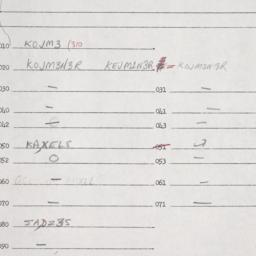 010 KOJM3 /310
020 KOJM3N3R KEJM3N3R = KOJM3N3R
030 — 031 —
040 — 041 —
042 — 043 —
050 KAXELS 051
052 O 053 —
060 — 061 —
070 — 071 —
080 JADZ35
090 —